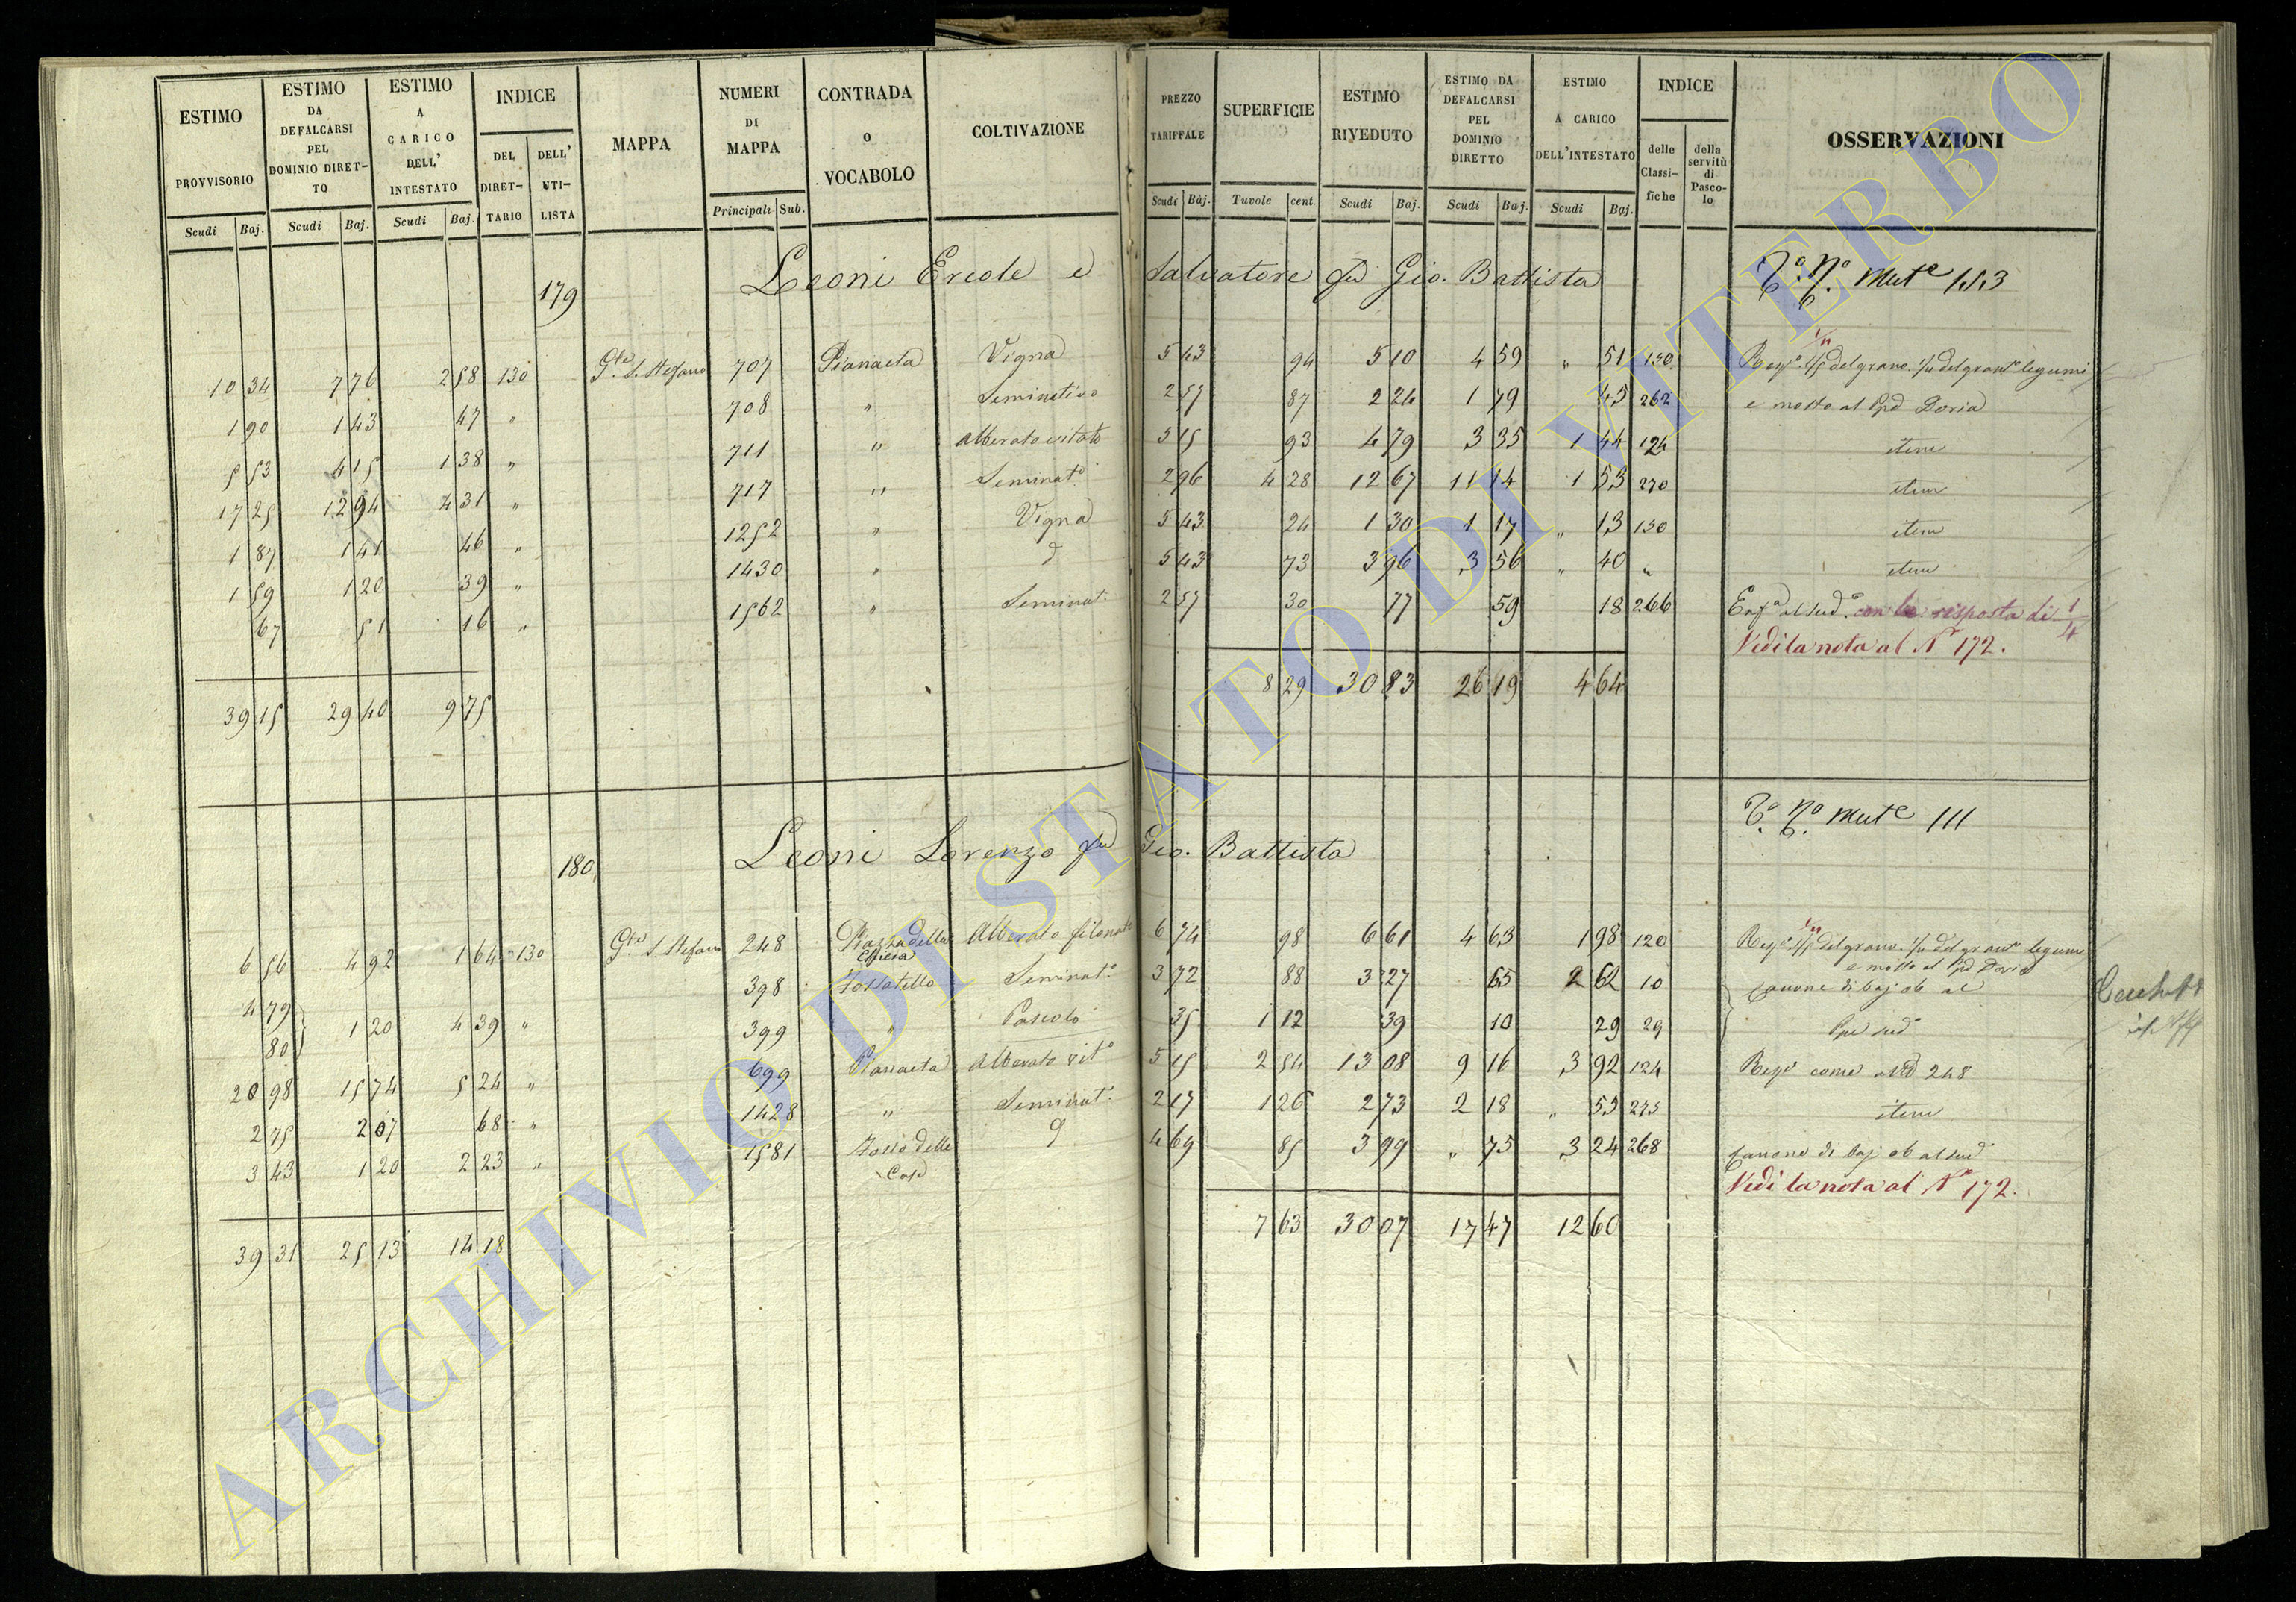 ESTIMO PROVVISORIO Scudi Baj.
ESTIMO DA DEFALCARSI PEL DOMINIO DIRET-TO Scudi Baj.
ESTIMO A CARICO DELL' INTESTATO Scudi Baj.
INDICE DEL DIRET-TARIO DELL' UTI-LISTA
MAPPA
NUMERI DI MAPPA Principali Sub.
CONTRADA o VOCABOLO
COLTIVAZIONE
PREZZO TARIFFALE Scudi Baj.
SUPERFICIE Tavole cent.
ESTIMO RIVEDUTO Scudi Baj.
ESTIMO DA DEFALCARSI PEL DOMINIO DIRETTO Scudi Baj.
ESTIMO A CARICO DELL'INTESTATO Scudi Baj.
INDICE delle Classi-fiche della servitù di Pasco-lo
OSSERVAZIONI
179 Leoni Ercole e Salvatore fu Gio. Battista Mut.e 153
10 34 7 76 2 58 130 G.te S. Stefano 707 Pianaeta Vigna 5 43 94 5 10 4 59 " 51 130 1/5 del grano legumi
1 90 1 43 47 " 708 " Seminativo 2 57 87 2 24 1 79 45 262 e mosto al Doria
5 53 4 15 1 38 " 711 " Alberato vitato 5 15 93 4 79 3 35 1 44 124 item
17 25 12 94 4 31 " 717 " Seminat.o 2 96 4 28 12 67 11 14 1 53 270 item
1 87 1 41 46 " 1252 " Vigna 5 43 24 1 30 1 17 " 13 130 item
1 59 1 20 39 " 1430 " 5 43 73 3 96 3 56 " 40 " item
67 51 16 " 1562 " Seminat. 2 57 30 77 59 18 266 con la risposta di 1/4
Vedi la nota al N° 172.
39 15 29 40 9 75 8 29 30 83 26 19 4 64
180 Leoni Lorenzo fu Gio. Battista Mut.e 111
6 56 4 92 1 64 130 G.te S. Stefano 248 Piazza della Chiesa Alberato filonato 6 74 98 6 61 4 63 1 98 120 1/5 del grano legumi e mosto al Doria
4 79 398 Fossatello Seminat.o 3 72 88 3 27 65 2 62 10 canone di baj 06 al
80 1 20 4 39 " 399 " Pascolo 35 1 12 39 10 29 29
20 98 15 74 5 24 " 699 Pianaeta Alberato vit.o 5 15 2 54 13 08 9 16 3 92 124 come 248
2 75 2 07 68 " 1428 " Seminat. 2 17 1 26 2 73 2 18 " 55 275 item
3 43 1 20 2 23 " 1581 Fosso delle Case 4 69 85 3 99 " 75 3 24 268 canone di baj 06 al sud.
Vedi la nota al N° 172.
39 31 25 13 14 18 7 63 30 07 17 47 12 60
ARCHIVIO DI STATO DI VITERBO